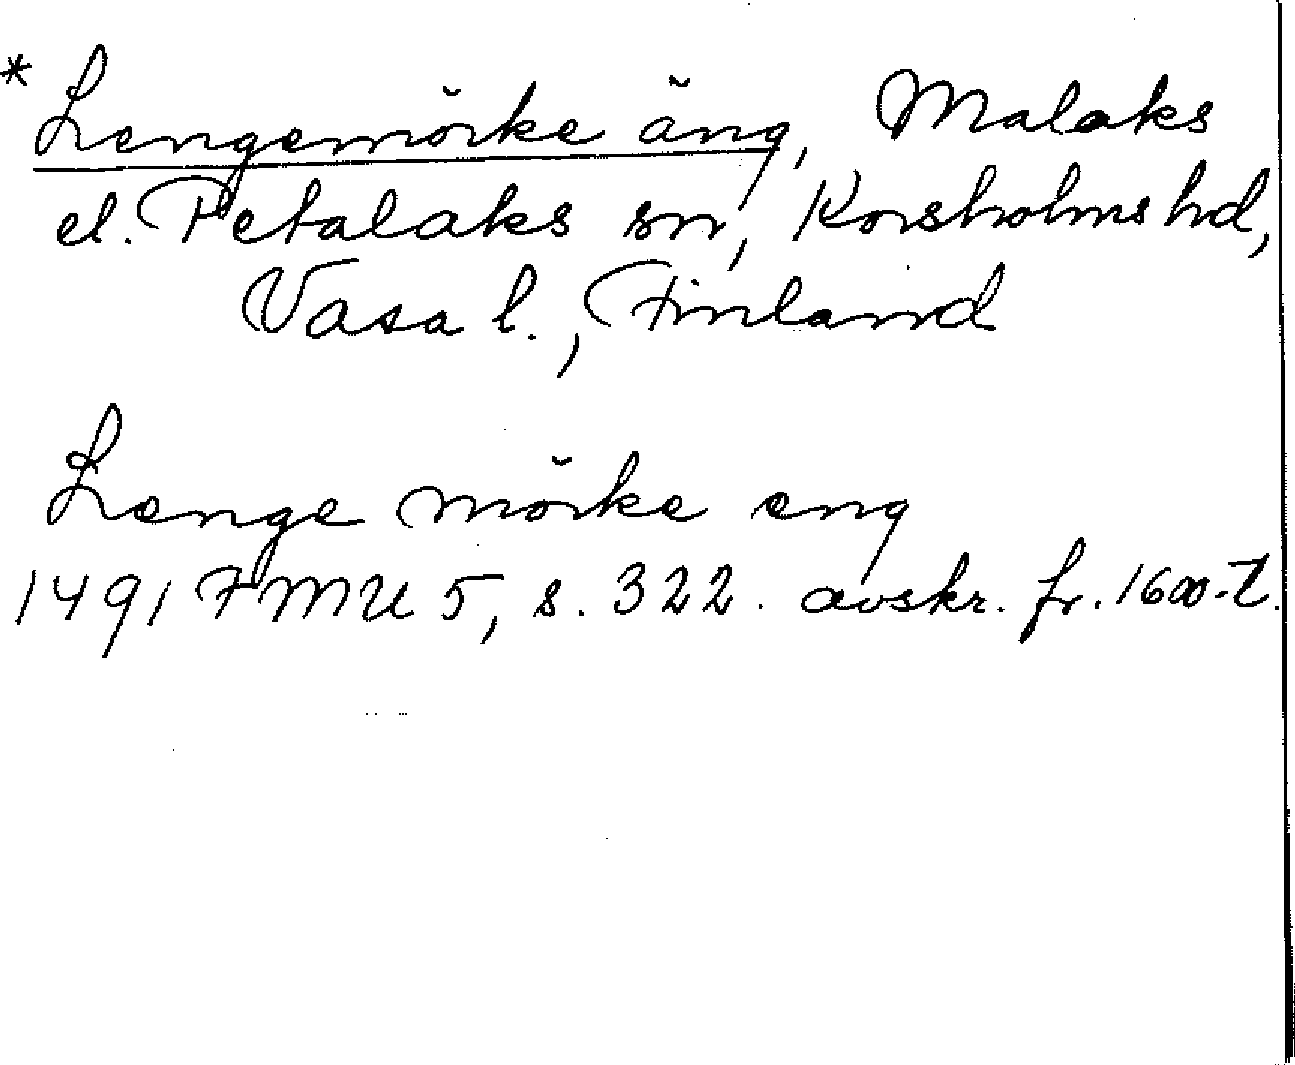 * Lengemörke äng, Malaks
el. Petalaks sn, Korsholms hd,
Vasa l., Finland
Lenge mörke eng
1491 FMU 5, s. 322. avskr. fr. 1600-t.